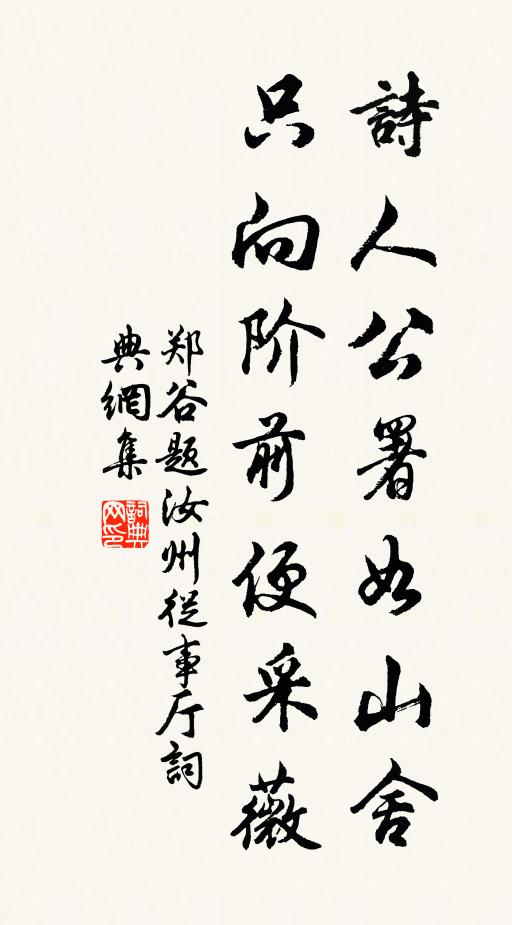 詩人公署如山舍
只向阶前便采薇
郑谷题汝州從事厅詞
典網集
詞典
网印